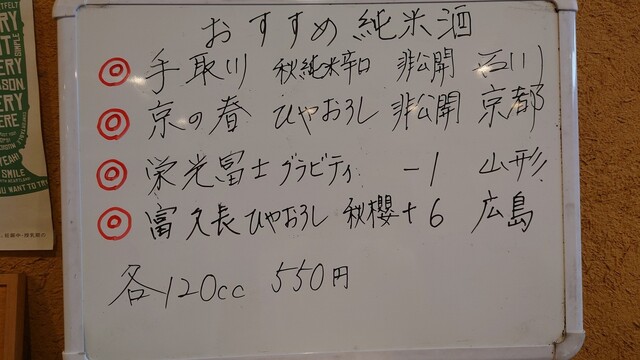 おすすめ 純米酒
◎ 手取川 秋純米辛口 非公開 石川
◎ 京の春 ひやおろし 非公開 京都
◎ 栄光冨士 グラビティ -1 山形
◎ 富久長 ひやおろし 秋櫻 +6 広島
各120cc 550円
SMILE
WANT TO